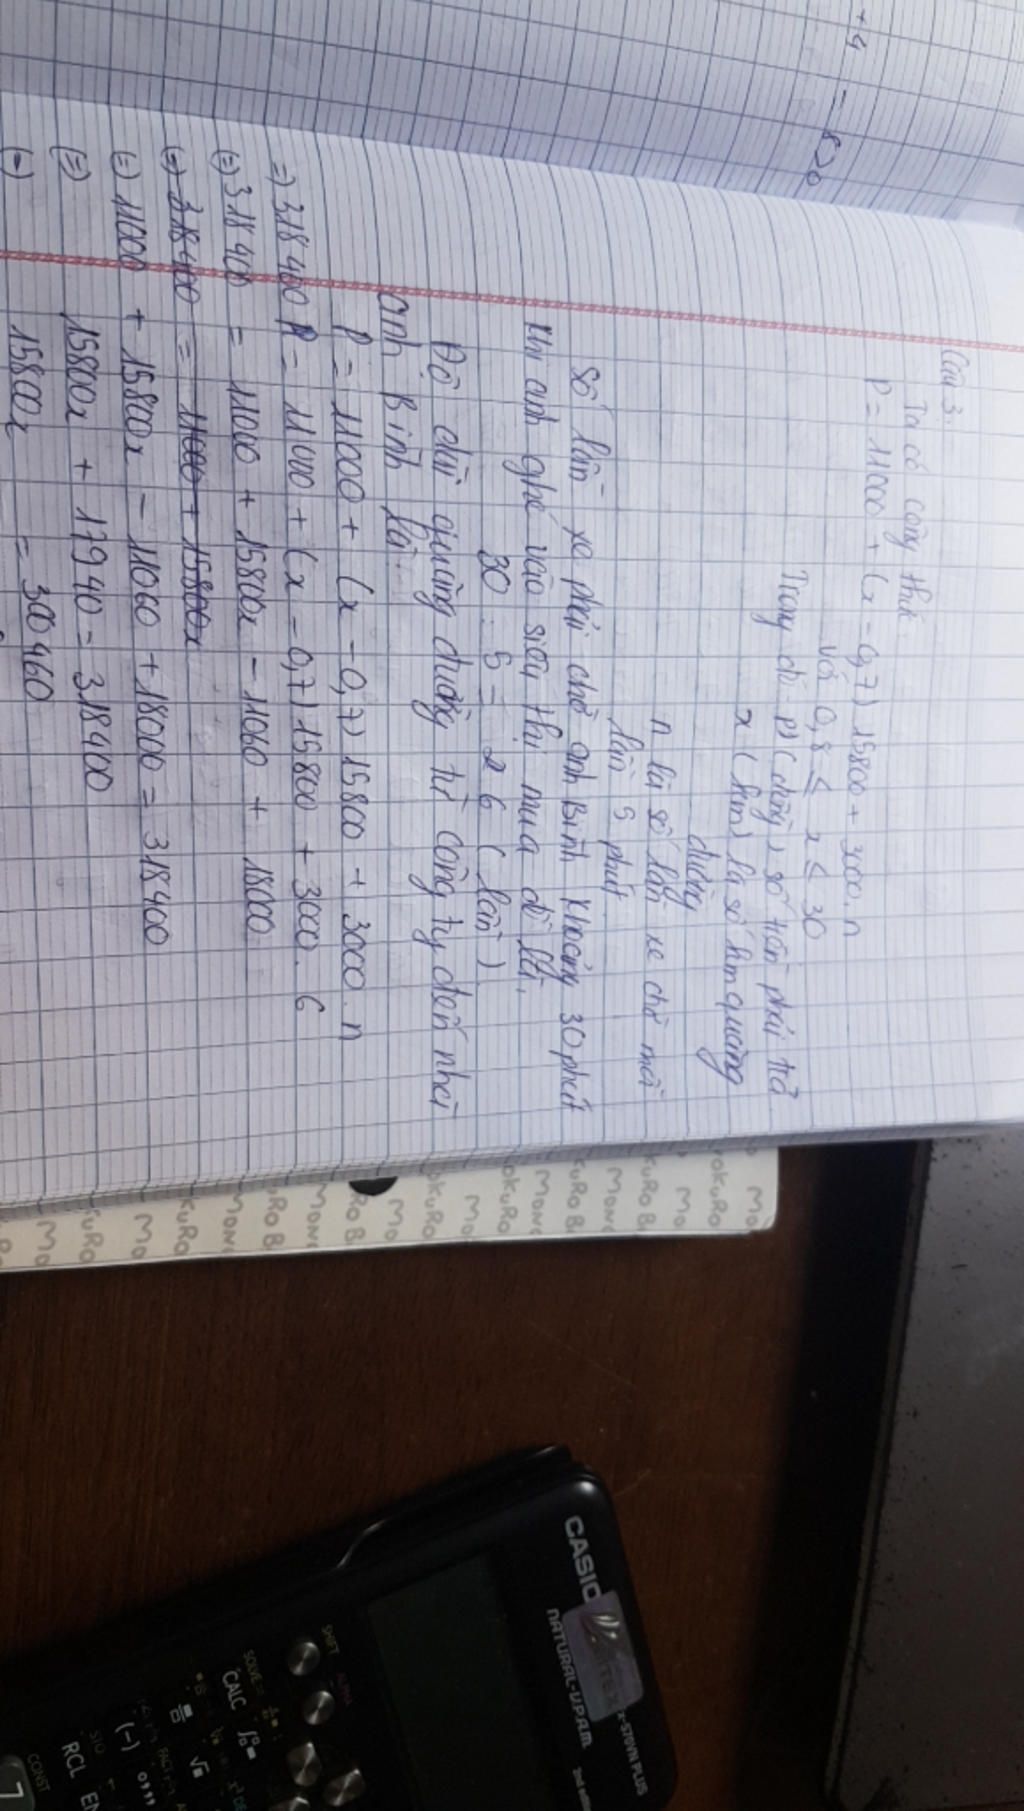 +4 = 820
Câu 3:
Ta có công thức
P = 11000 + (x - 0,7) 15800 + 3000.n
và 0,8 ≤ x ≤ 30
Trong đó P (đồng) số tiền phải trả
x (km) là số km quãng
đường
n là số lần xe chờ mỗi
lần 5 phút
Số lần xe phải chờ anh Bình khoảng 30 phút
khi anh ghé vào siêu thị mua đồ là
30 : 5 = 6 (lần)
Độ dài quãng đường từ công ty đến nhà
anh Bình là:
P = 11000 + (x - 0,7) 15800 + 3000.n
=) 318400 = 11000 + (x - 0,7) 15800 + 3000.6
(=) 318400 = 11000 + 15800x - 11060 + 18000
(=) 318400 = 11000 + 15800x
(=) 11000 + 15800x - 11060 + 18000 = 318400
(=) 15800x + 17940 = 318400
(=) 15800x = 300460
MONOKURO BO
CASIO
NATURAL-V.P.A.M.
fx-570VN PLUS
2nd edition
SHIFT ALPHA
SOLVE =
CALC
RCL
STO
CONST
(-)
7